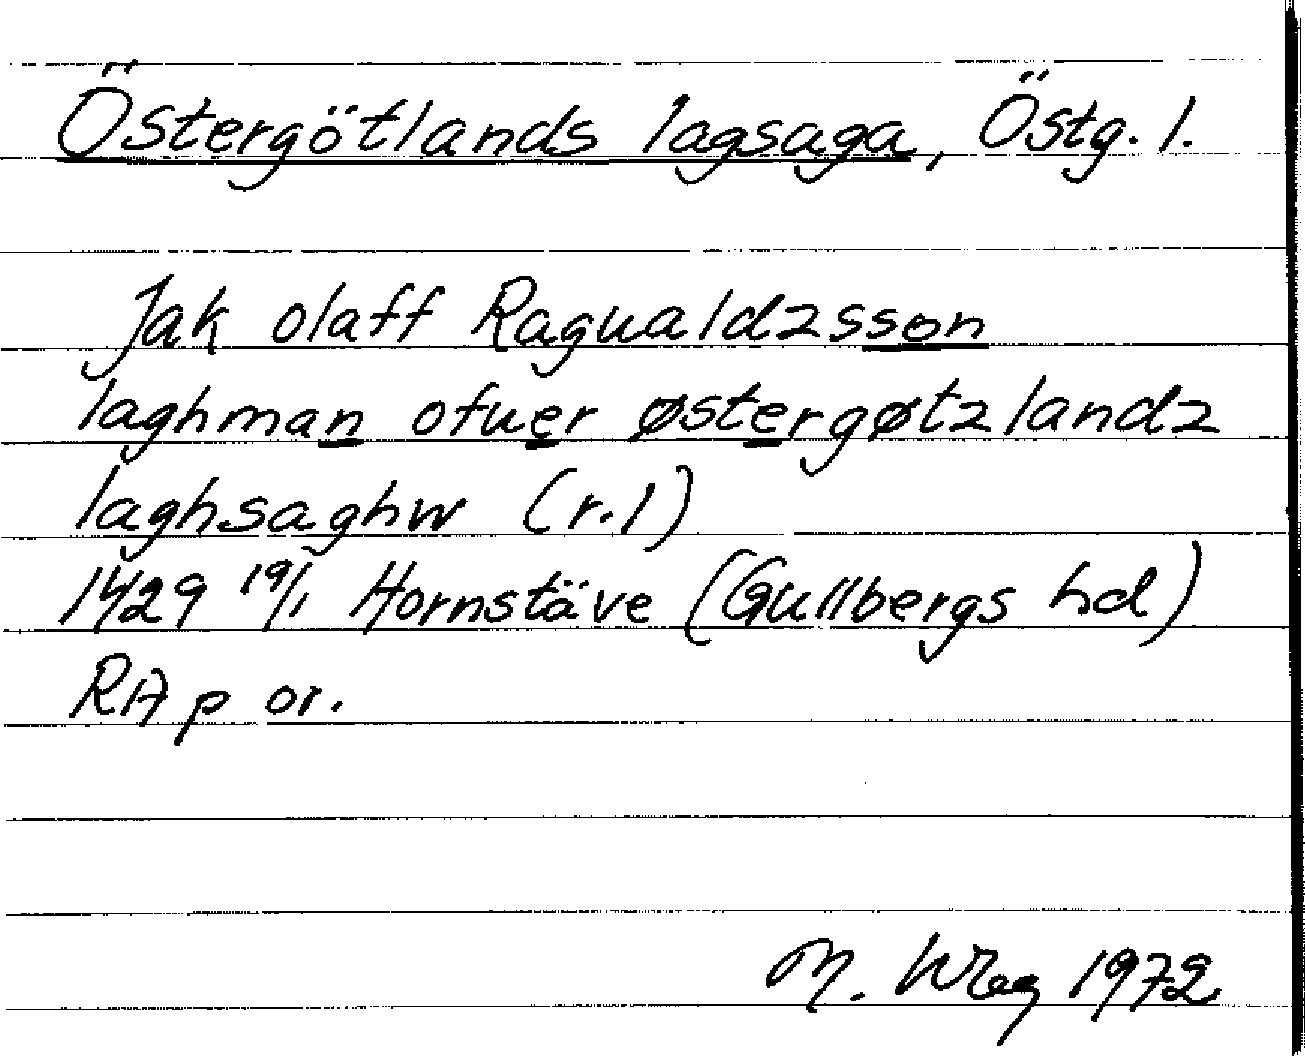 Östergötlands lagsaga, Östg. l.
Jak olaff Ragualdzsson
laghman ofuer østergøtzlandz
laghsaghw (r.1)
1429 19/1 Hornstäve (Gullbergs hd)
RA p or.
M. 1972